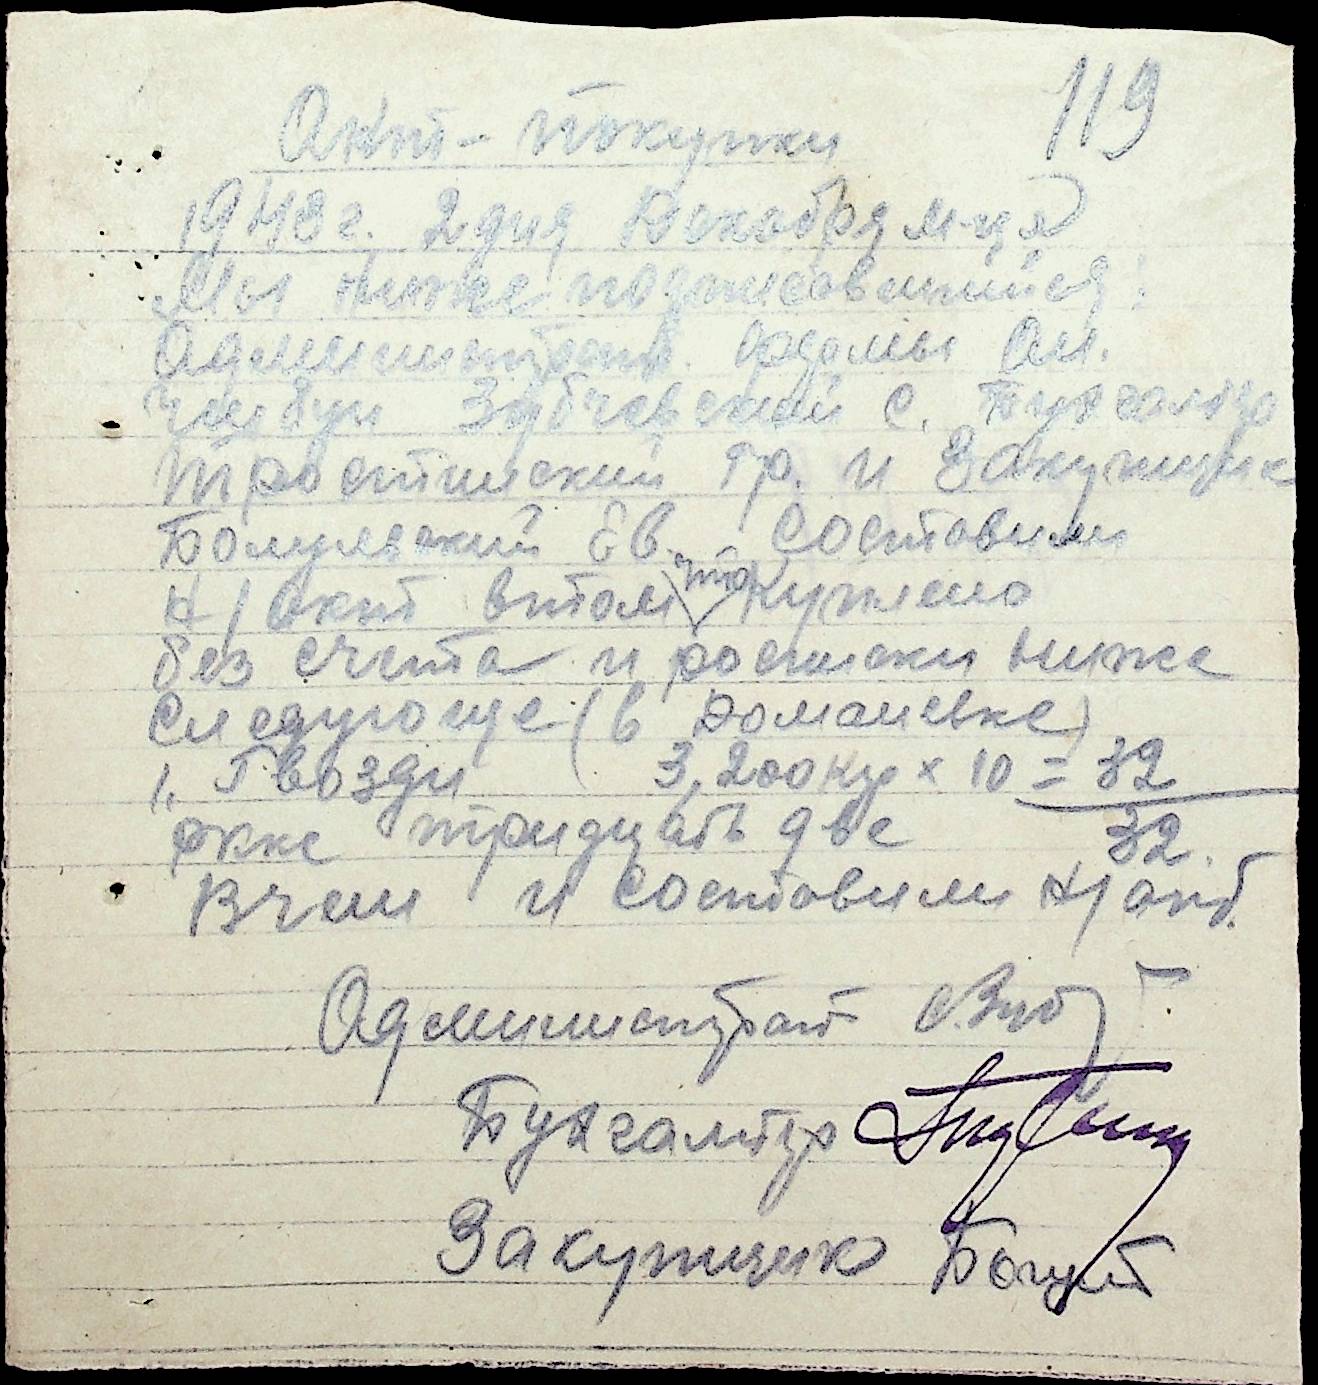 119
Акт-покупки
1943 г. 2 дня Декабря м-ця
Мы ниже подписовшийся:
Администрат. фермы Ак.
Зубчевский С. Бухгалтер
Тростинский Гр. и Закупщик
Ев. Составили
н/акт втом что куплено
без счета и росписки ниже
следующе (в Доманевке)
1. Гвозди 3,200 кгр × 10 = 32
ркке тридцать две 32.
Вчем и составили н/акт.
Администрат СЗуб
Бухгалтер
Закупщик